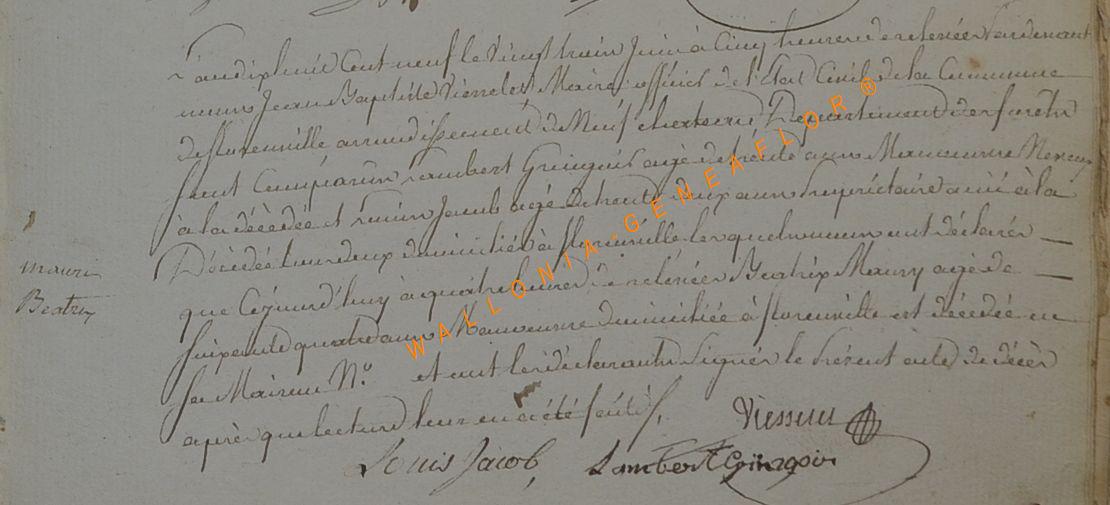 L'an dix huit Cent neuf le Vingt huit Juin à Cinq heures de relevée Pardevant
nous Jean Baptiste Vierrelet Maire officier de l'Etat Civil de la Commune
de florenville arrondissement de Neuf chateau Département des forêts
sont Comparus Lambert Gringoir agé de trente ans Manœuvre Neveux
à la décédée et Louis Jacob agé de trente deux ans Propriétaire ami à la
Décédée tous deux domiciliés à florenville lesquels nous ont déclarés
que Cejourd'huy à quatre heures de relevée Beatrix Maury agé de
soixante quatre ans Manœuvre domiciliée à florenville est décédée en
sa Maison N.º et ont les déclarants signés le Présent acte de décès
après que lecture leur en a été faite
mauri
Beatrix
Louis Jacob Lambert Gringoir
WALLONIA-GENEAFLOR®